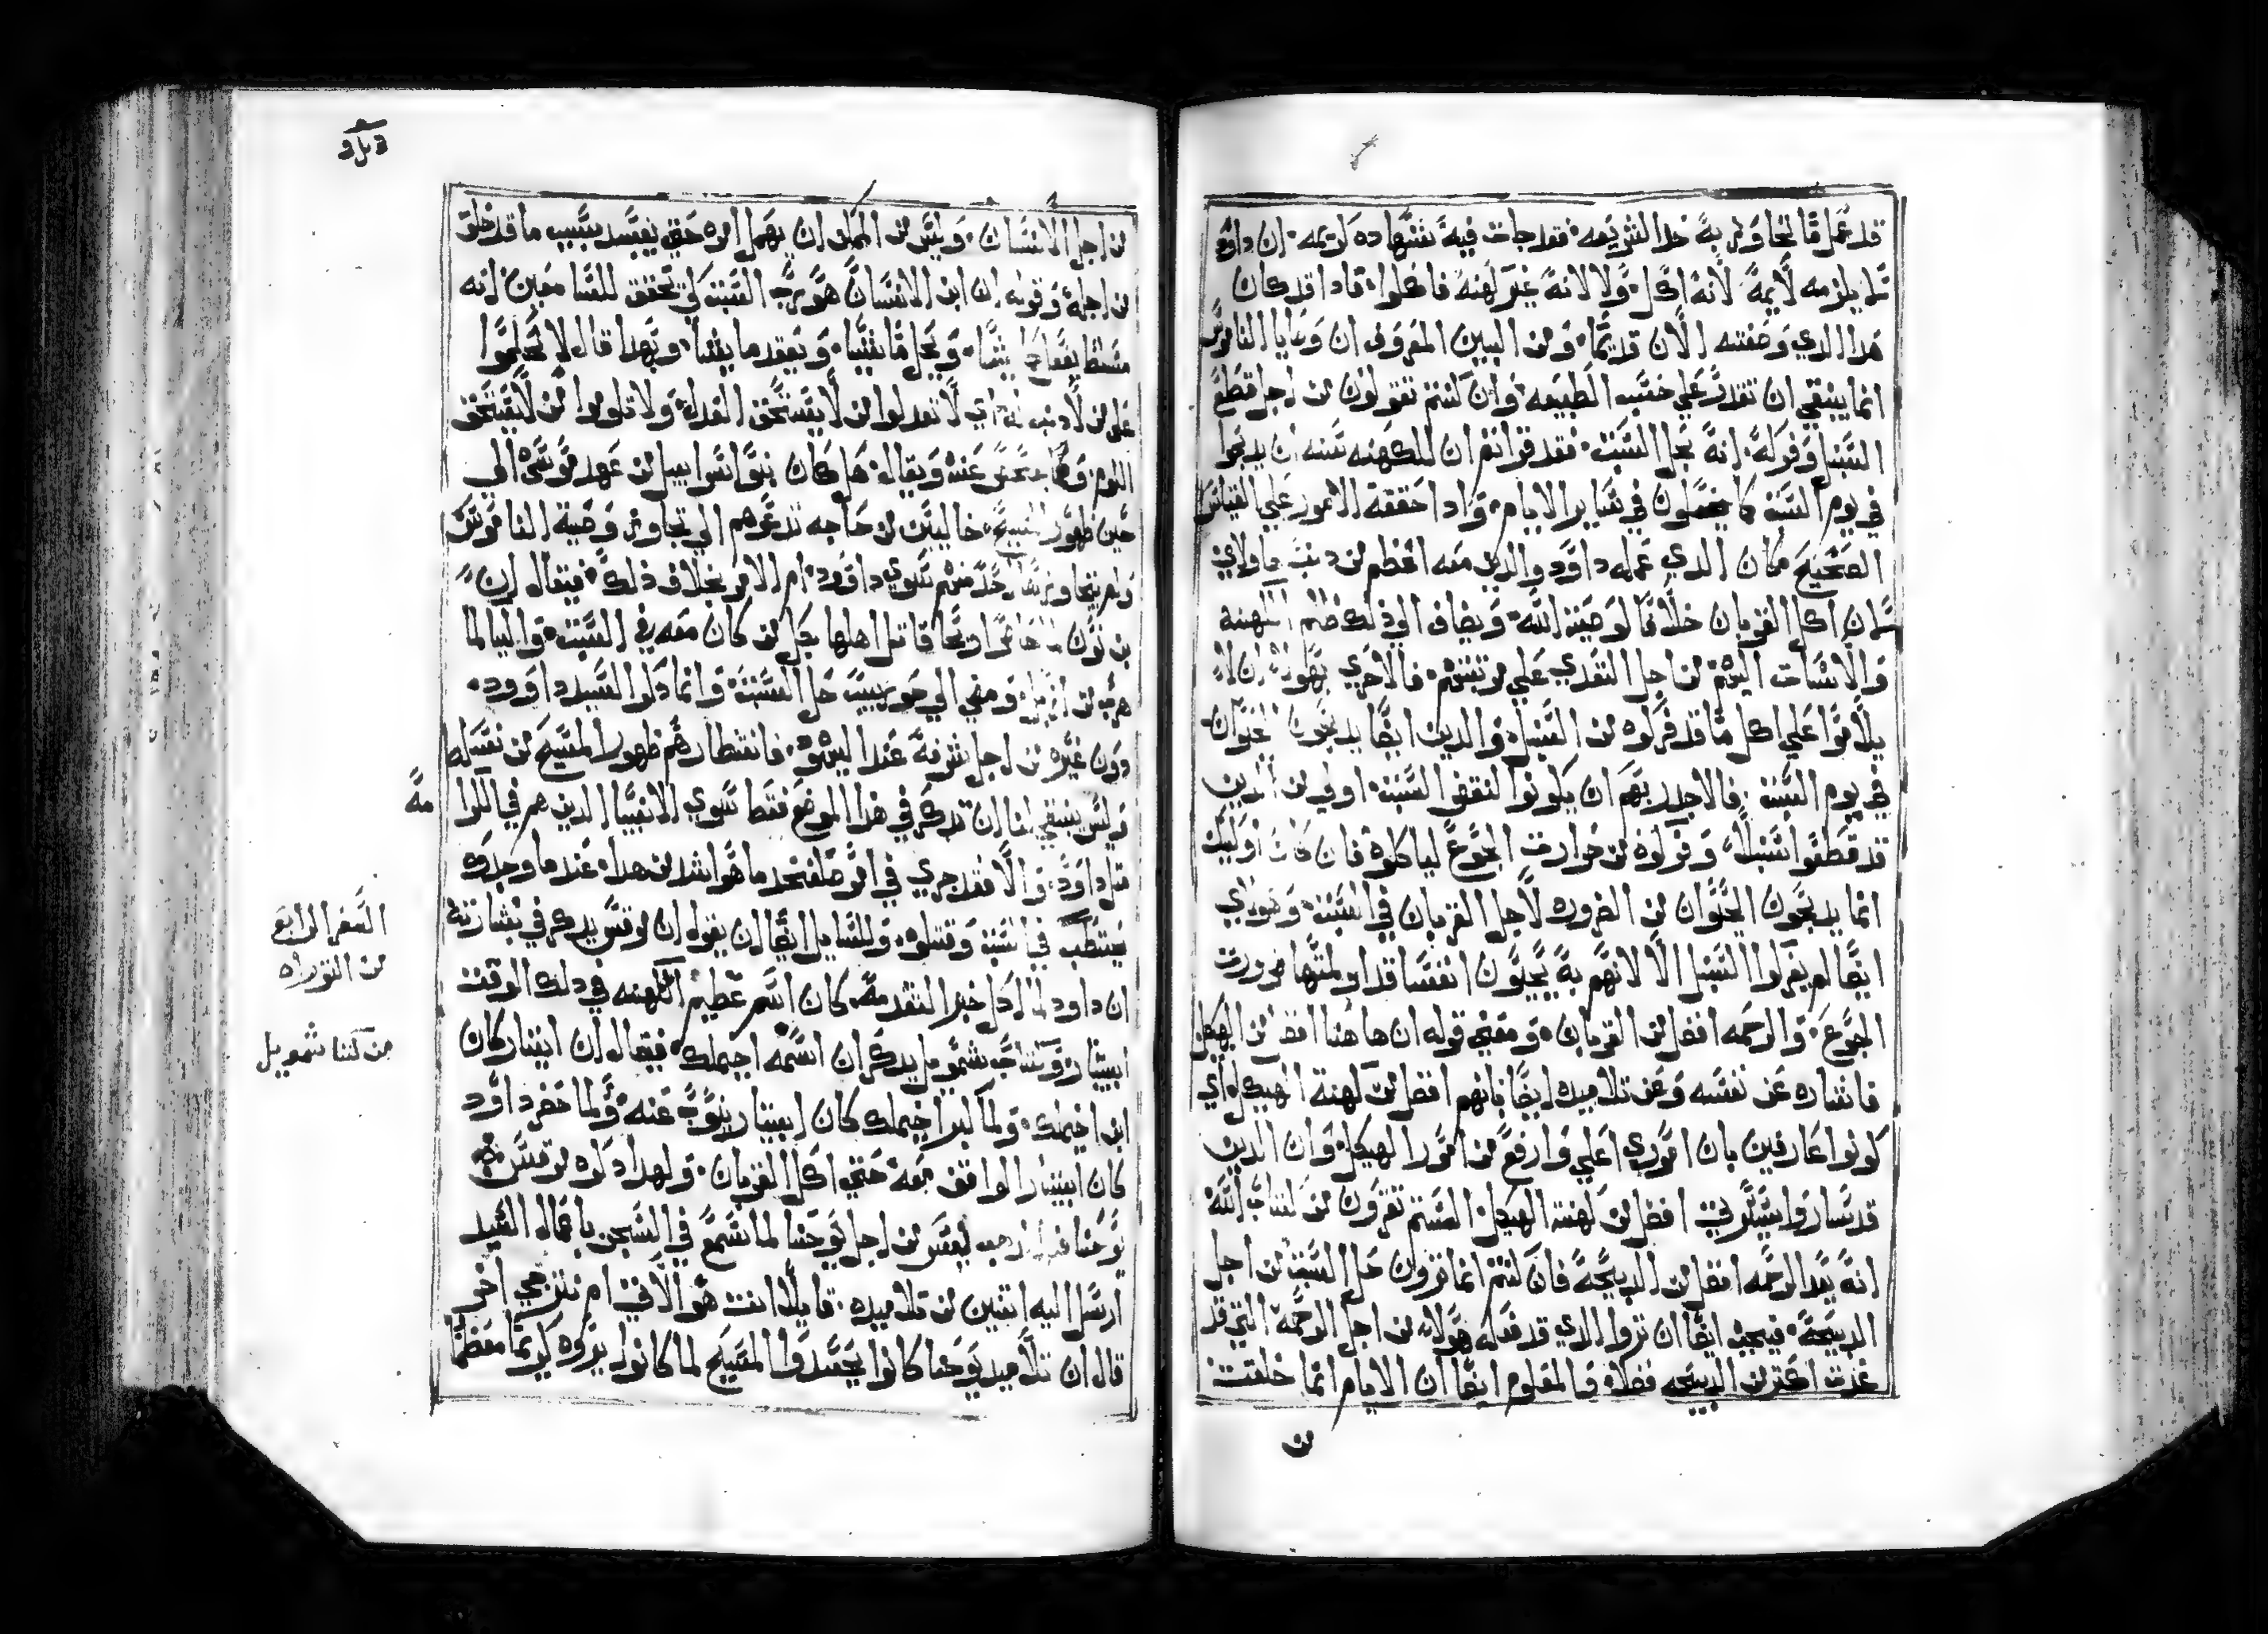 قد عمل ما تجاوز به حد الشريعه فقد جات فيه بشهاده كريمه ان داود
ما يلزمه لايمه لانه اكل ولا لانه غير كهنه فاكلوا فاذا قد كان
هدا الدي وصفته الان قديما ومن البين المعروف ان وصايا الناموس
انما ينبغي ان تقدر علي حسب الطبيعه وان كنتم تقولون من اجل قطع
السنبل وفركه انه بحل السبت فقد قراتم ان للكهنه سنه ان يدبحوا
في يوم السبت كما يفعلون في ساير الايام واداحققة الامور علي القياس
الصحيح فكان الدي عمله داود والدين معه اعظم من دنب هاولاي
لان اكل القربان خلافا لوصية الله ويضاف الي ذلك ظلم الكهنه
والانسات اليهم من اجل التعدي علي مرتبتهم فالاحري بهولا ان لا
يلاموا علي اكل ما قد فركوه من السنبل والدين ايضا يدبحون الحيوان
في يوم السبت فالاجدر بهم ان يكونوا لنقض السبت اولي من الدين
قد قطفوا سنبلا وفركوه من حرارت الجوع لياكلوه فان كانت اوليك
انما يدبحون الحيوان من الضروره لاجل القربان في السبت وهولاي
ايضا لم يفركوا السنبل الا لانهم به يحيون انفسا قد اولمتها ضرورت
الجوع والرحمه افضل من القربان ومعني قوله ان هاهنا افضل من الهيكل
فاشاره عن نفسه وعن تلاميده ايضا فانهم افضل من كهنة الهيكل اي
كونوا عارفين بان اموري اعلي وارفع من امور الهيكل وان الدين
قد ساروا بسيرتي افضل من كهنة الهيكل الستم تقرون من كتاب الله
انه يدا الرحمه افضل من الدبيحه فان كنتم انما ترون حل السبت من اجل
الدبيحة فيجب ايضا ان تروا الدي قد فعله هولاي من اجل الرحمة التي قد
غدت اكتر من الدبيحه فضلا والمعلوم ايضا ان الايام انما خلقت
من
من اجل الانسان وليس من الممكن ان يهمل امره حتي يفسد بسبب ما قد خلق
من اجله وقوله ان ابن الانسان هو رب السبت لكي تحقق للسامعين انه
متسط يفعل ما يشا ويحل ما يشا ويعقد ما يشا وبهدا قال لا تحكموا
علي من لا دنب له اي لا تعدلوا من لا يستحق العدل ولا تلوموا من لا يستحق
اللوم وما يفحص عنه ويقال ها كان بنوا اسراييل من عهد موسي الي
حين ظهور المسيح خاليين من حاجه تدعوهم الي تجاوز وصية الناموس
ولم يتجاوزها احد منهم سوي داود ام الامر بخلاف ذلك فيقال ان
بن نون لما حاصر اريحا قاتل اهلها بجل من كان معه في السبت واليا لما
هرب من ازبل ومضي الي حوريب حل السبت وانما دكروا السيد داوود
دون غيره من اجل شرفه عند اليهود فانتظارهم ظهور المسيح من نسله
وليس ينبغي لنا ان تدكر في هدا الموضع فقط سوي الانبيا الدين هم في اللوا
مة
قبل داود والا فقد جري في امر صلفحد ما هو اشد من هدا عندما وجدوه
يحتطب في السبت وقتلوه وللسايل ايضا ان يقول ان مرقس يدكر في بشارته
ان داود لما اكل خبز التقدمة كان اسم عظيم الكهنه في دلك الوقت
ابيثار وكتاب شمويل يدكر ان اسمه اخيملك فيقال ان ابيثار كان
ابن اخيملك ولما كبر اخيملك كان ابيثار ينوب عنه ولما حضر داود
كان ابيثار الواقف معه حتي اكل القربان ولهدا دكره مرقس
يوحنا لما سمع في السجن باعمال السيد
ارسل اليه اتنين من تلاميده قايلا انت هو الاتي ام نترجي اخر
قال ان تلاميد يوحنا كانوا يحسدوا المسيح لما كانوا يروه كريما معظما
السفر الرابع
من التوراه
من كتاب شمويل